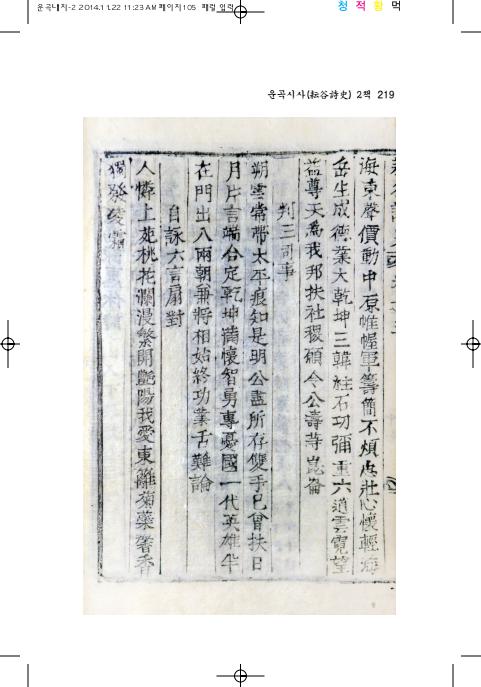 운곡내지-2 2014.11.22 11:23 AM 페이지105
청 적 황 먹
운곡시사(耘谷詩史) 2책 219
海東聲價動中原惟幄軍籌簡不煩忠壯心懷輕海
岳生成德業大乾坤三韓柱石功彌重六道雲霓望
益尊天為我邦扶社稷願令公壽等崑崙
判三司事
朔雲常帶太平痕知是明公盡所存雙手已曾扶日
月片言端合定乾坤滿懷智勇專憂國一代英雄半
在門出入兩朝兼將相始終功業舌難論
自詠六言扇對
人憐上苑桃花瀾漫繁開艶陽我愛東籬菊藥馨香
獨發凌霜